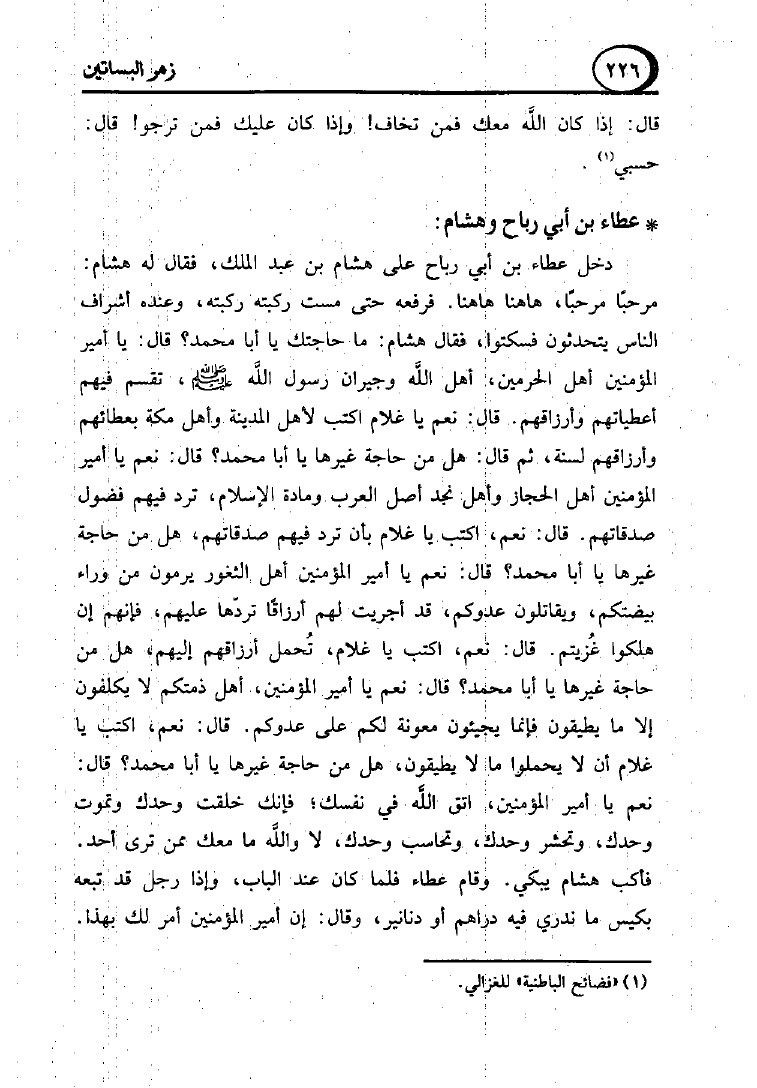 ٢٢٦
زهر البساتين
قال: إذا كان اللَّه معك فمن تخاف! وإذا كان عليك فمن ترجو! قال:
حسبي(١) .
* عطاء بن أبي رباح وهشام:
دخل عطاء بن أبي رباح على هشام بن عبد الملك، فقال له هشام:
مرحبًا مرحبًا، هاهنا هاهنا. فرفعه حتى مست ركبته ركبته، وعنده أشراف
الناس يتحدثون فسكتوا، فقال هشام: ما حاجتك يا أبا محمد؟ قال: يا أمير
المؤمنين أهل الحرمين، أهل اللَّه وجيران رسول اللَّه ﷺ، تقسم فيهم
أعطياتهم وأرزاقهم. قال: نعم يا غلام اكتب لأهل المدينة وأهل مكة بعطائهم
وأرزاقهم لسنة، ثم قال: هل من حاجة غيرها يا أبا محمد؟ قال: نعم يا أمير
المؤمنين أهل الحجاز وأهل نجد أصل العرب ومادة الإسلام، ترد فيهم فضول
صدقاتهم. قال: نعم، اكتب يا غلام بأن ترد فيهم صدقاتهم، هل من حاجة
غيرها يا أبا محمد؟ قال: نعم يا أمير المؤمنين أهل الثغور يرمون من وراء
بيضتكم، ويقاتلون عدوكم، قد أجريت لهم أرزاقًا تردّها عليهم، فإنهم إن
هلكوا غُزيتم. قال: نعم، اكتب يا غلام، تُحمل أرزاقهم إليهم، هل من
حاجة غيرها يا أبا محمد؟ قال: نعم يا أمير المؤمنين، أهل ذمتكم لا يكلفون
إلا ما يطيقون فإنما يجيئون معونة لكم على عدوكم. قال: نعم، اكتب يا
غلام أن لا يحملوا ما لا يطيقون، هل من حاجة غيرها يا أبا محمد؟ قال:
نعم يا أمير المؤمنين، اتق اللَّه في نفسك؛ فإنك خلقت وحدك وتموت
وحدك، وتحشر وحدك، وتحاسب وحدك، لا والله ما معك ممن ترى أحد.
فأكب هشام يبكي. وقام عطاء فلما كان عند الباب، وإذا رجل قد تبعه
بكيس ما ندري فيه دراهم أو دنانير، وقال: إن أمير المؤمنين أمر لك بهذا.
(١) «فضائح الباطنية» للغزالي.